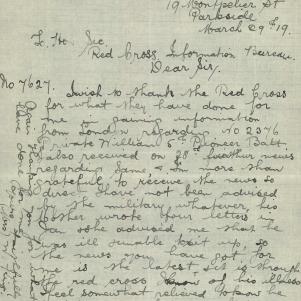 19 Montpelier St
Parkside
March 29th 19.
To Hon Sec
Red Cross Information Bureau.
Dear Sir,
No 7627. I wish to thank the Red Cross
for what they have done for
me in gaining information
from London regarding No 2376
Private William 5th Pioneer Batt.
I also received on 28th further news
regarding same, & am more than
grateful to receive the news so
direct. I have not been advised
by the military, whatever, his
mother wrote four letters in
Jan so she advised me that he
was ill unable to sit up, so
the news you have got for
me is the latest, so it is through
the red cross I know of his illness
feel somewhat relieved to know he